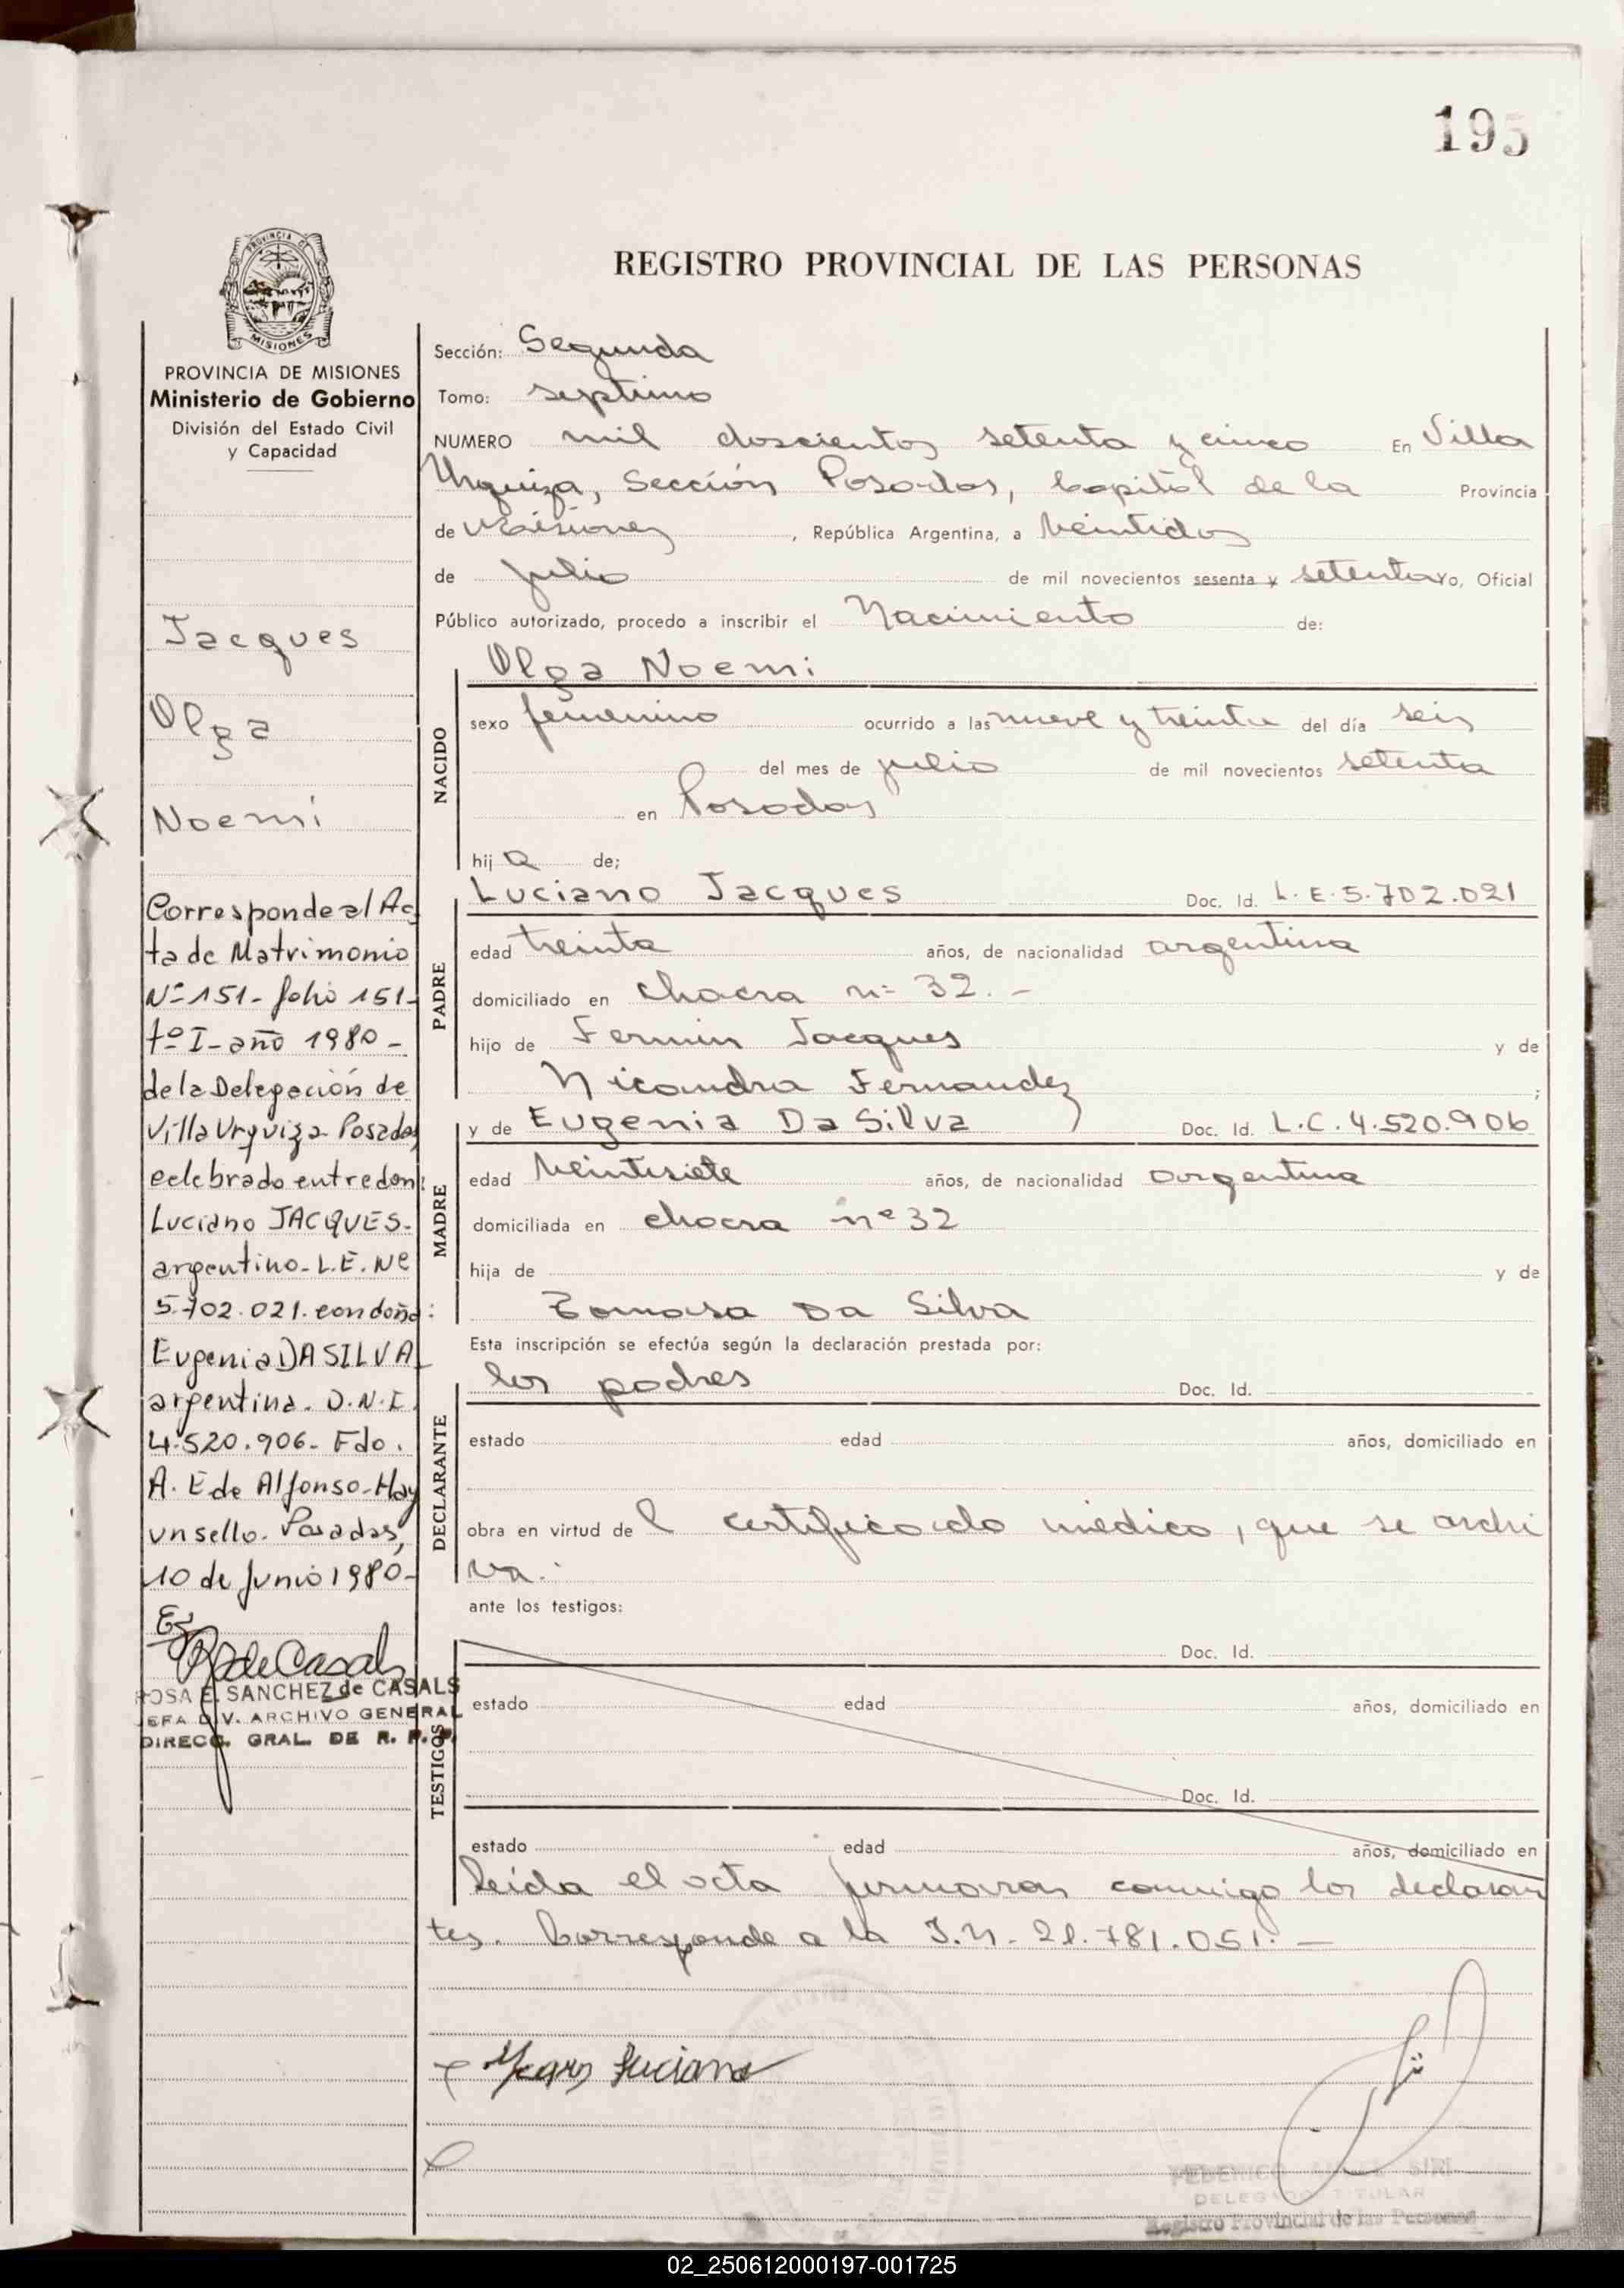 195
PROVINCIA DE
MISIONES
PROVINCIA DE MISIONES
Ministerio de Gobierno
División del Estado Civil
y Capacidad
Jacques
Olga
Noemí
Corresponde al Ac
ta de Matrimonio
Nº 151- folio 151-
tº I- año 1980-
de la Delegación de
Villa Urquiza- Posadas
celebrado entre don:
Luciano JACQUES-
argentino- L.E. Nº
5.702.021. con doña:
Eugenia DA SILVA
argentina. D.N.I.
4.520.906- Fdo.
A. E de Alfonso- Hay
un sello. Posadas,
10 de Junio 1980-
R de Casals
ROSA E. SANCHEZ de CASALS
JEFA DIV. ARCHIVO GENERAL
DIRECC. GRAL. DE R. P. P.
REGISTRO PROVINCIAL DE LAS PERSONAS
Sección: Segunda
Tomo: septimo
NUMERO mil doscientos setenta y cinco En Villa
Urquiza, Sección Posadas, Capital de la Provincia
de Misiones, República Argentina, a veintidos
de julio de mil novecientos sesenta y setenta yo, Oficial
Público autorizado, procedo a inscribir el Nacimiento de:
Olga Noemi
NACIDO
sexo femenino ocurrido a las nueve y treinta del día seis
del mes de julio de mil novecientos setenta
en Posadas
hija de;
PADRE
Luciano Jacques Doc. Id. L.E.5.702.021
edad treinta años, de nacionalidad argentina
domiciliado en chacra nº 32.-
hijo de Fermin Jacques y de
Nicandra Fernandez ;
MADRE
y de Eugenia Da Silva Doc. Id. L.C. 4.520.906
edad veintisiete años, de nacionalidad argentina
domiciliada en chacra nº 32
hija de y de
Tomasa Da Silva
Esta inscripción se efectúa según la declaración prestada por:
DECLARANTE
los padres Doc. Id.
estado edad años, domiciliado en
obra en virtud del certificado médico, que se archi
va.
ante los testigos:
TESTIGOS
Doc. Id.
estado edad años, domiciliado en
Doc. Id.
estado edad años, domiciliado en
Leída el acta firmaran conmigo los declaran
tes. Corresponde a la I.N. 21.781.051.-
Luciano
FEDERICO SIRI
DELEGADO TITULAR
Registro Provincial de las Personas
02_250612000197-001725